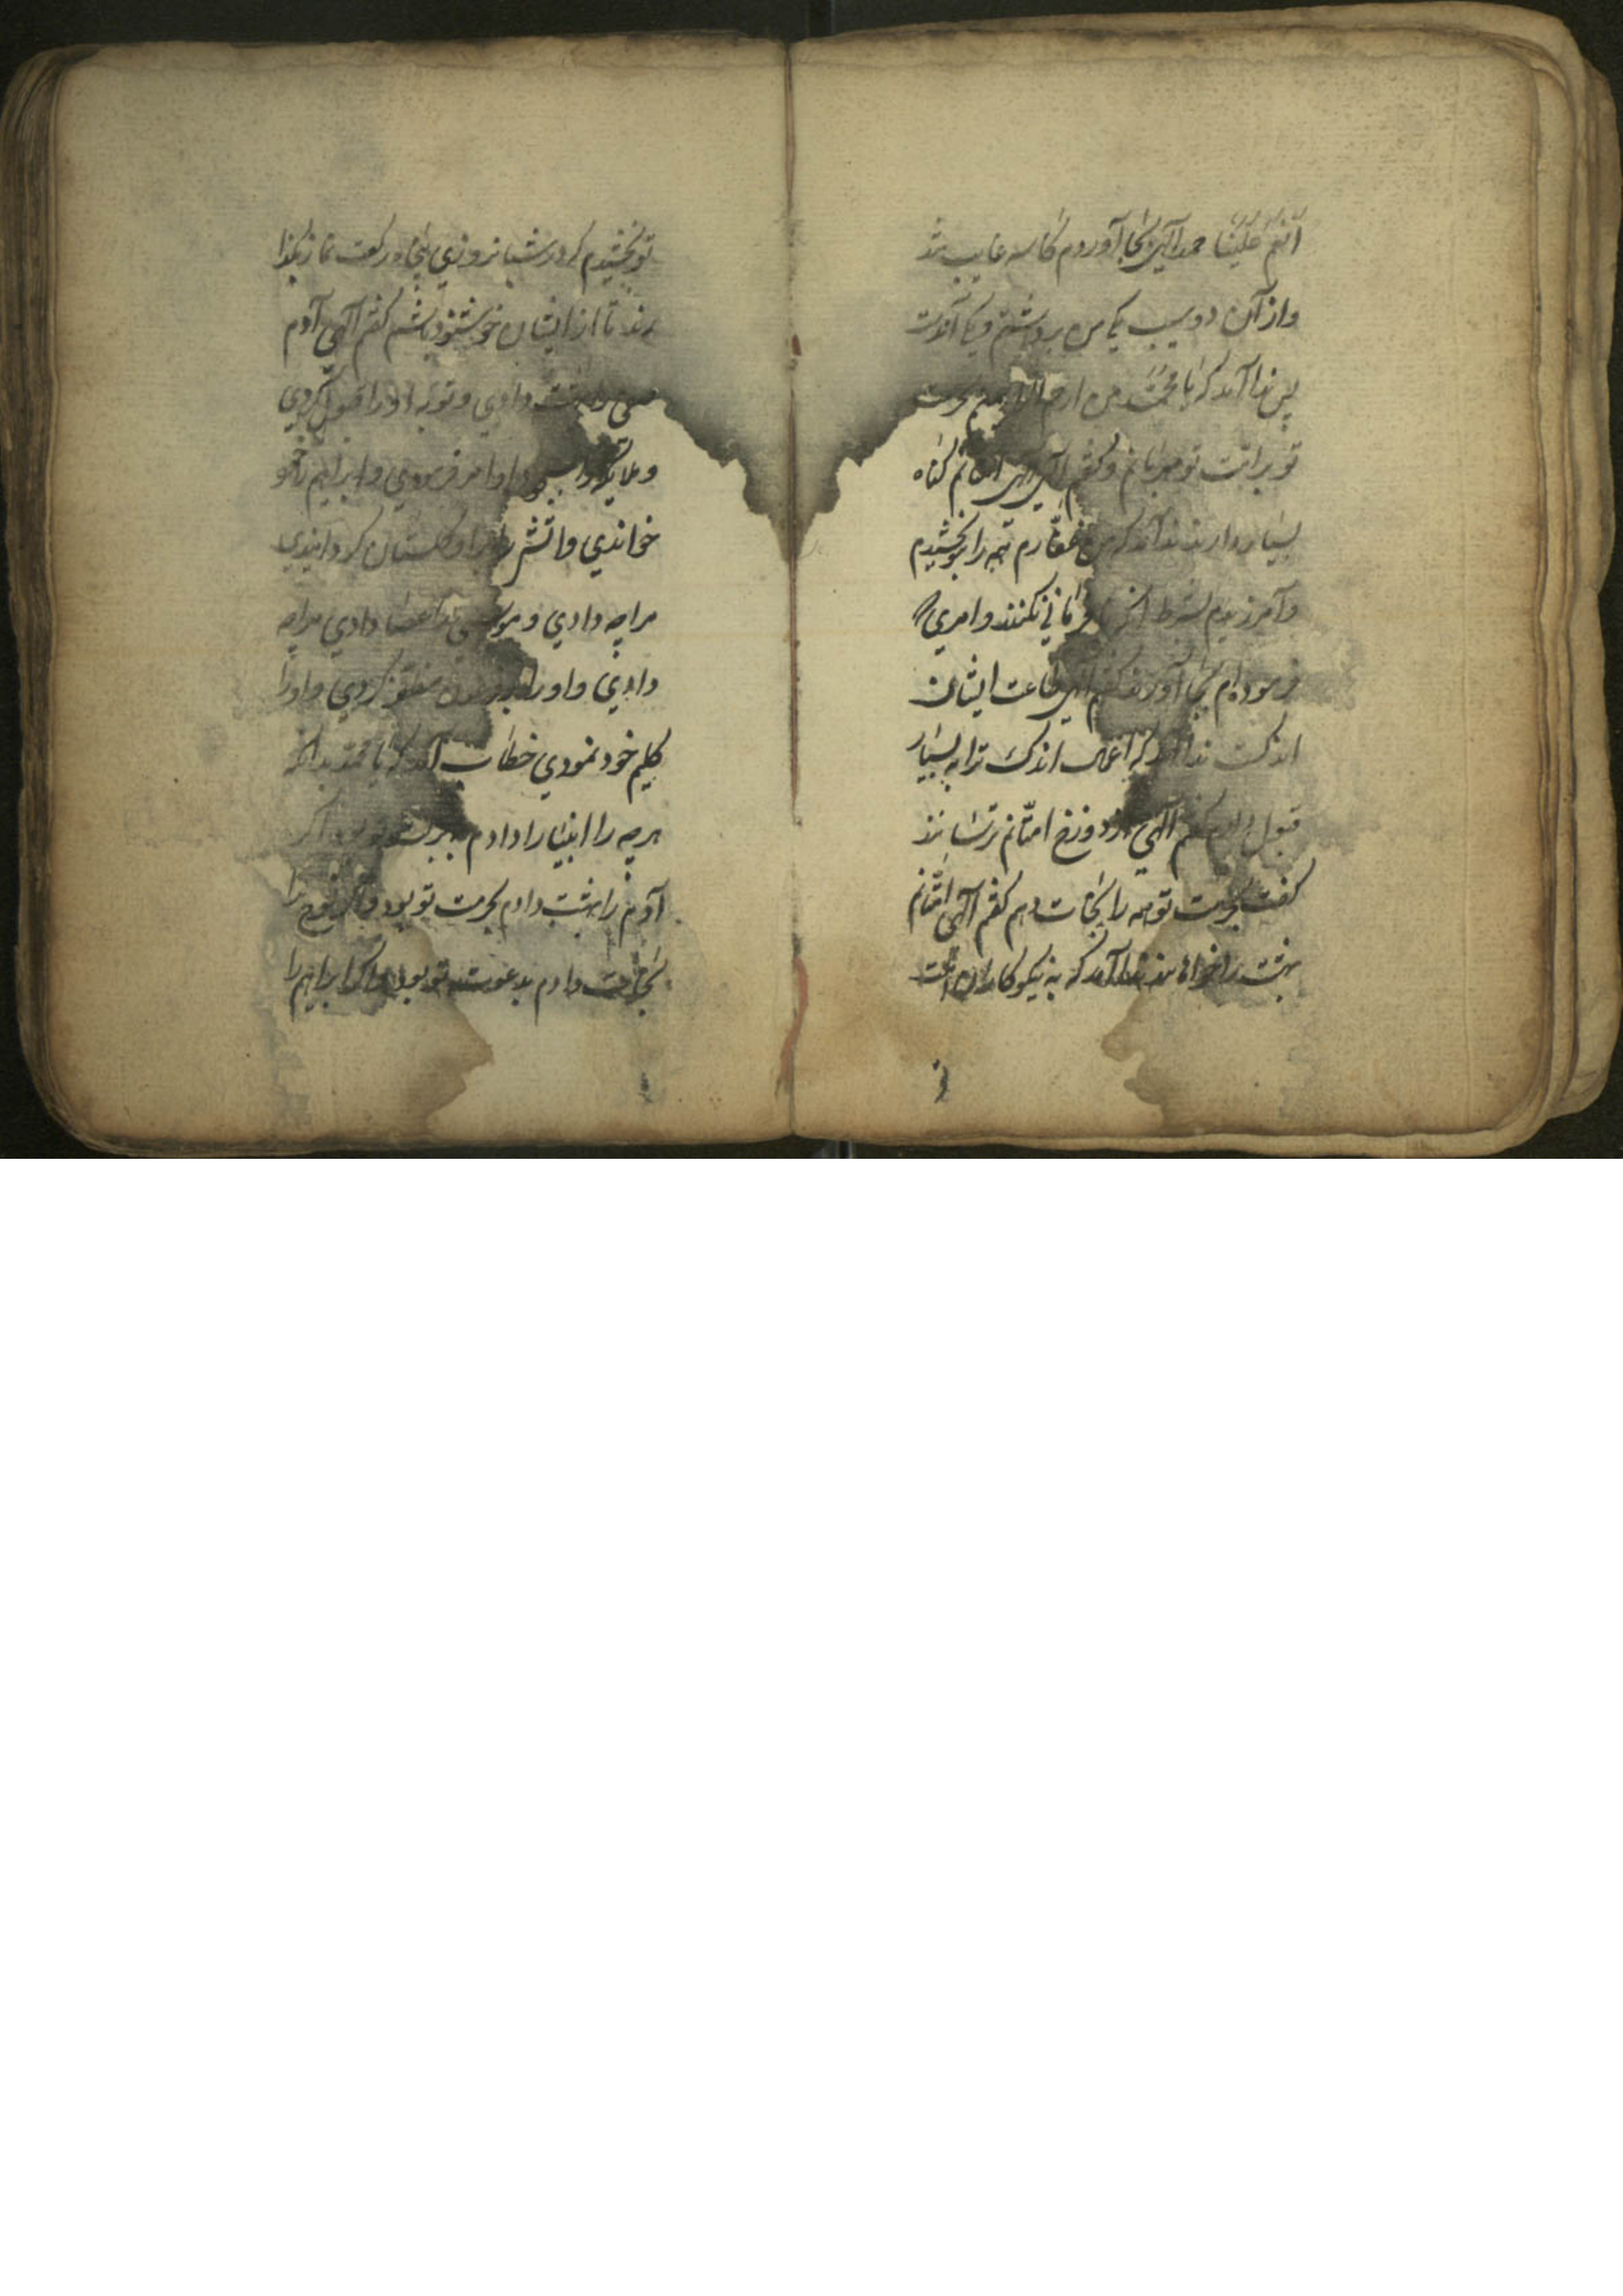 انعم علینا حمد الهی بجا آوردم کاسه غایب شد
واز آن دو سیب یکی من برداشتم و یکی
پس ندا آمد که یا محمد من ارحم
تو بر امت تو مهربانم و گفتم الهی امتانم گناه
بسیار دارند ندا آمد که من غفارم همه را بتو بخشیدم
و آمرزیدم بشرط آنکه نافرمانی نکنند و امری که
فرموده ام بجا آورند گفتم الهی طاعت ایشان
اندکست ندا آمد که اعمال اندک ترا به بسیار
قبول دارم گفتم الهی از دوزخ امتانم ترسانند
گفت بحرمت تو همه را نجات دهم گفتم الهی امتانم
بهشت را خواهانند ندا آمد که به نیکوکاران امت
تو بخشیدم که در شبانروزی پنجاه رکعت نماز بگذا
رند تا از ایشان خوشنود باشم گفتم الهی آدم
صفی را بهشت دادی و توبه او را قبول کردی
و ملایکه را بسجود او امر فرمودی و ابراهیم را تو
خواندی و آتش را بر او گلستان گردانیدی
مرا چه دادی و موسی را عصا دادی مرا چه
دادی و او را بر فرعون مظفر کردی و او را
کلیم خود نمودی خطاب آمد که یا محمد بدانکه
هر چه را انبیا را دادم به برکت تو بود اگر
آدم را بهشت دادم بحرمت تو بود و اگر نوح را
نجات دادم بدعوت تو بود و اگر ابراهیم را